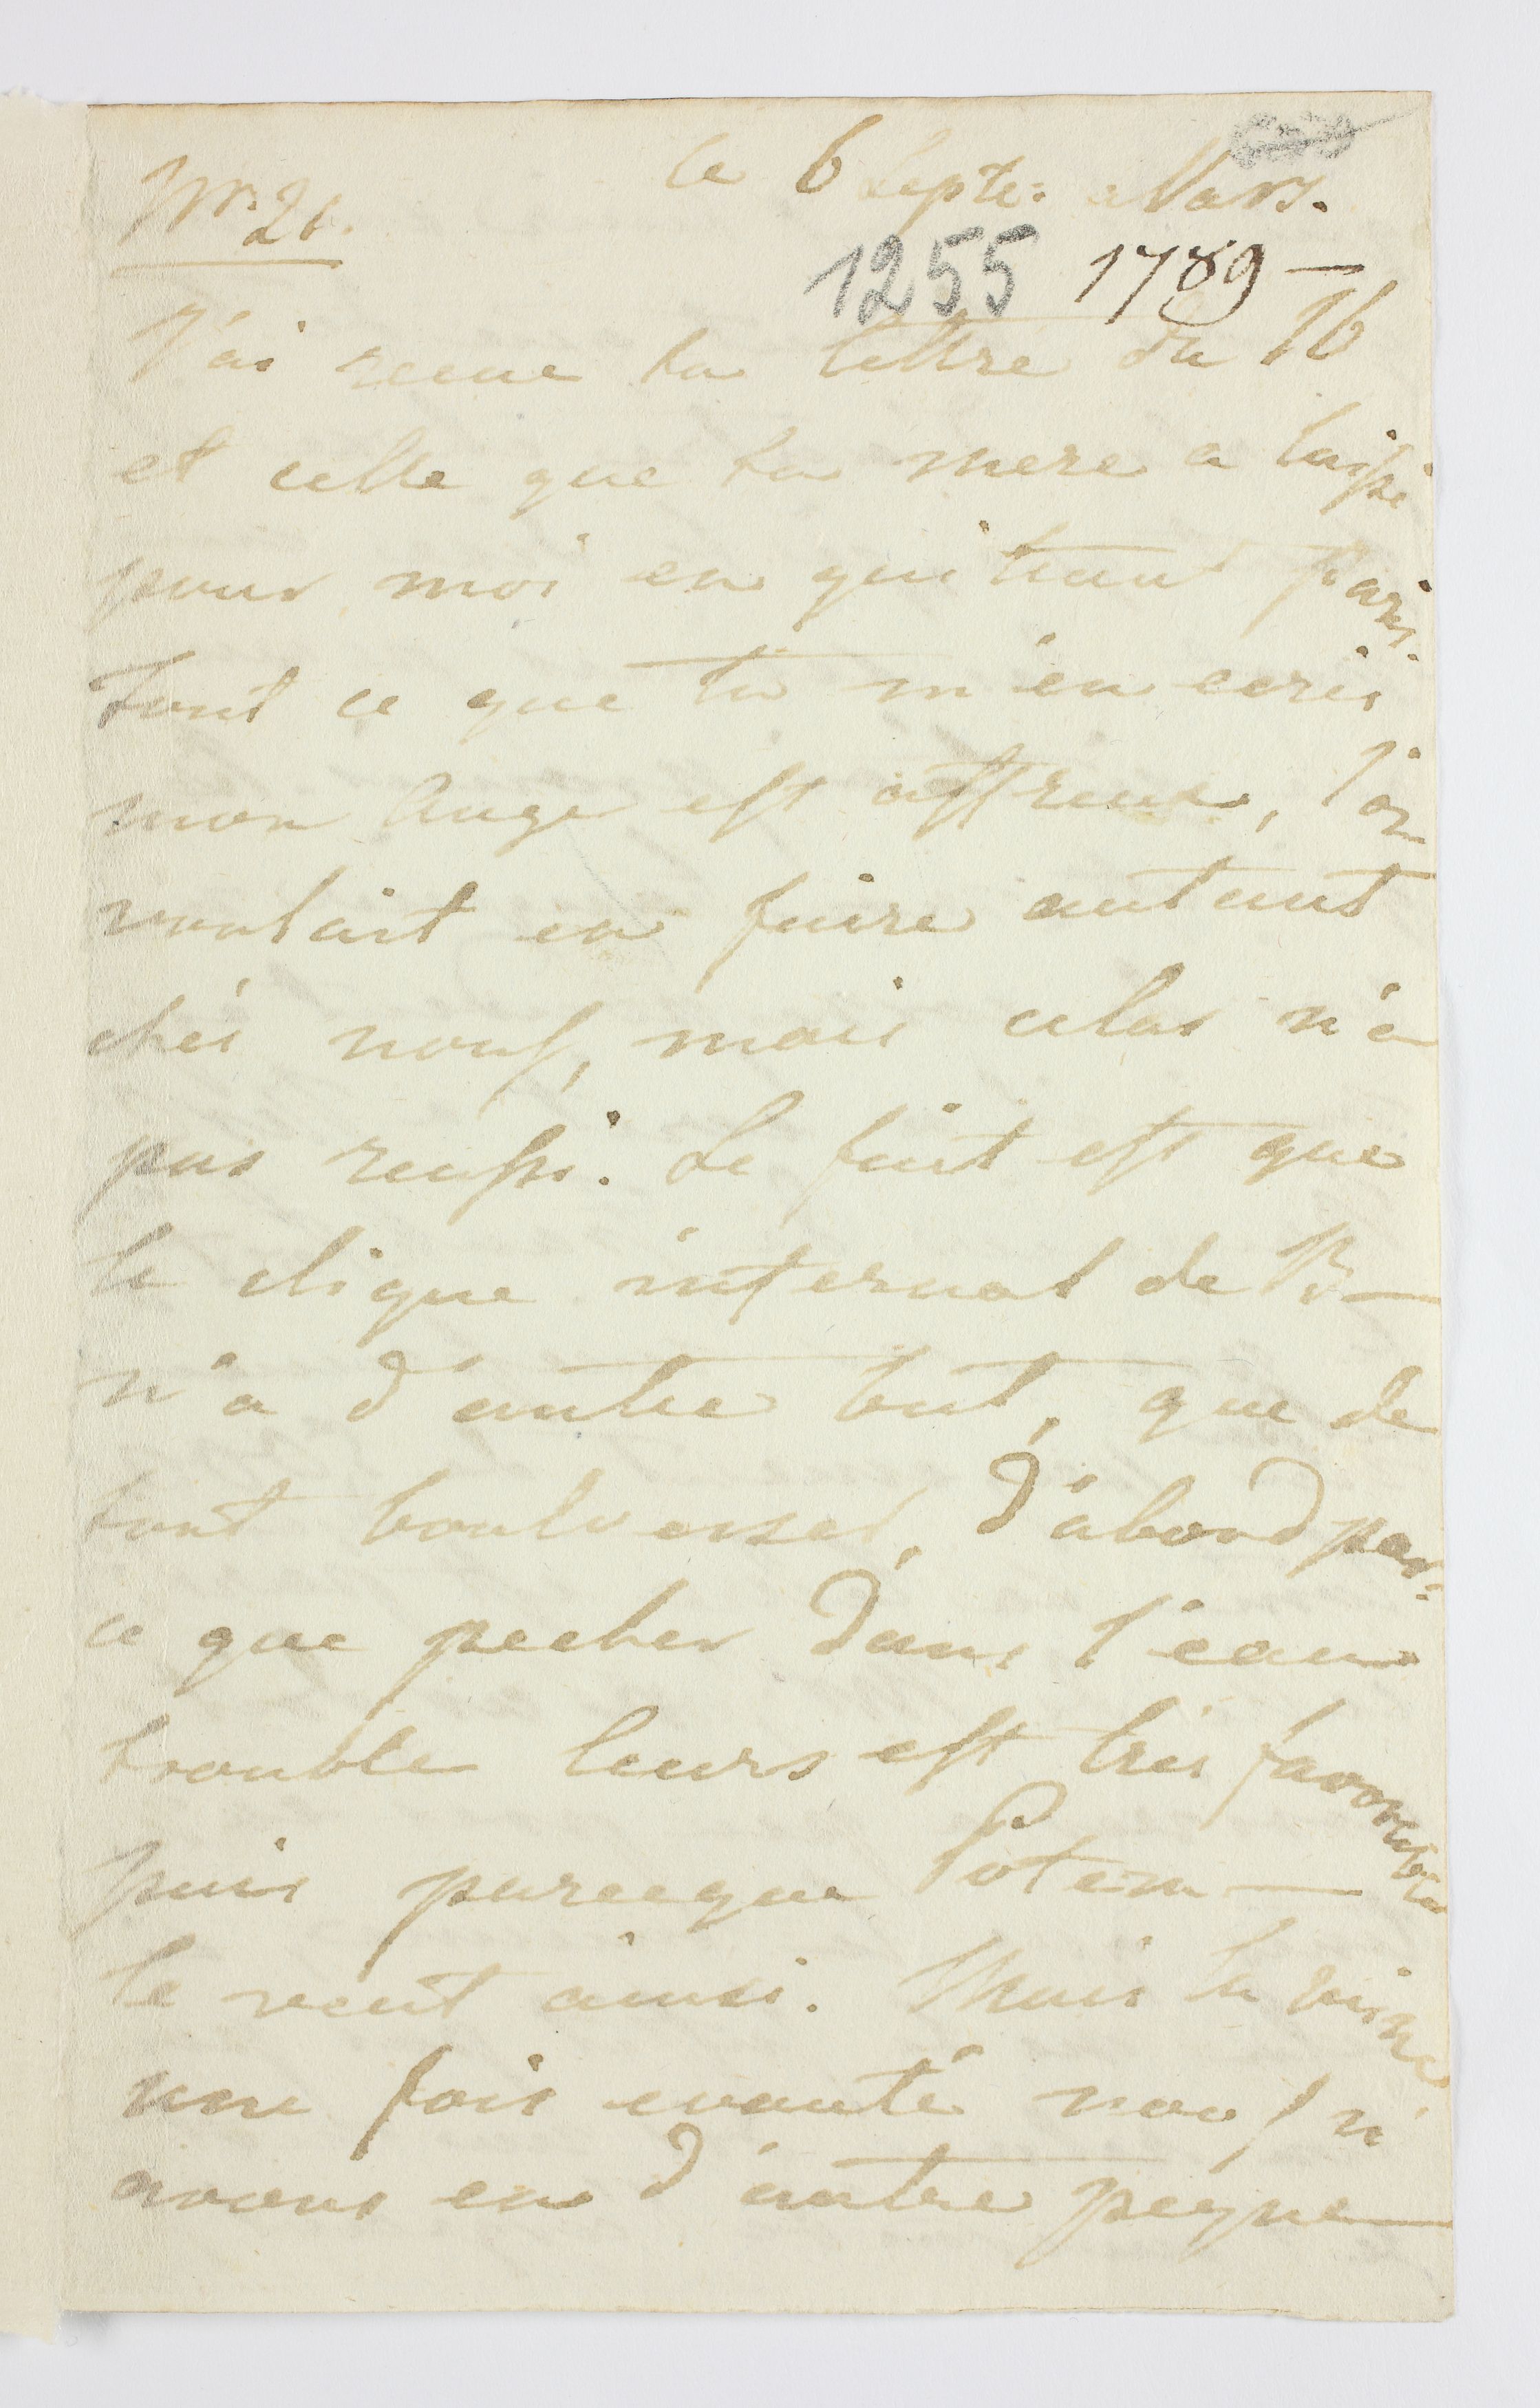 le 6 Septe: Mars.
Nr. 21.
1255 1789 —
J'ai recue ta lettre du 16
et celle que ta mere a laissé
pour moi en quittant Paris.
Tout ce que tu m'en ecris
mon Ange est affreux, l'on
voulait en faire autant
chés nous, mais cela n'a
pas reussi. Le fait est que
le clique infernal de B—
n'a d'autre but, que de
tout boulverser, d'abord par:
ce que pecher dans l'eau
trouble leurs est très favorable
puis parceque Potem—
le veut ainsi. Mais la
une fois eventé nous n'
avons eu d'autre peyne—